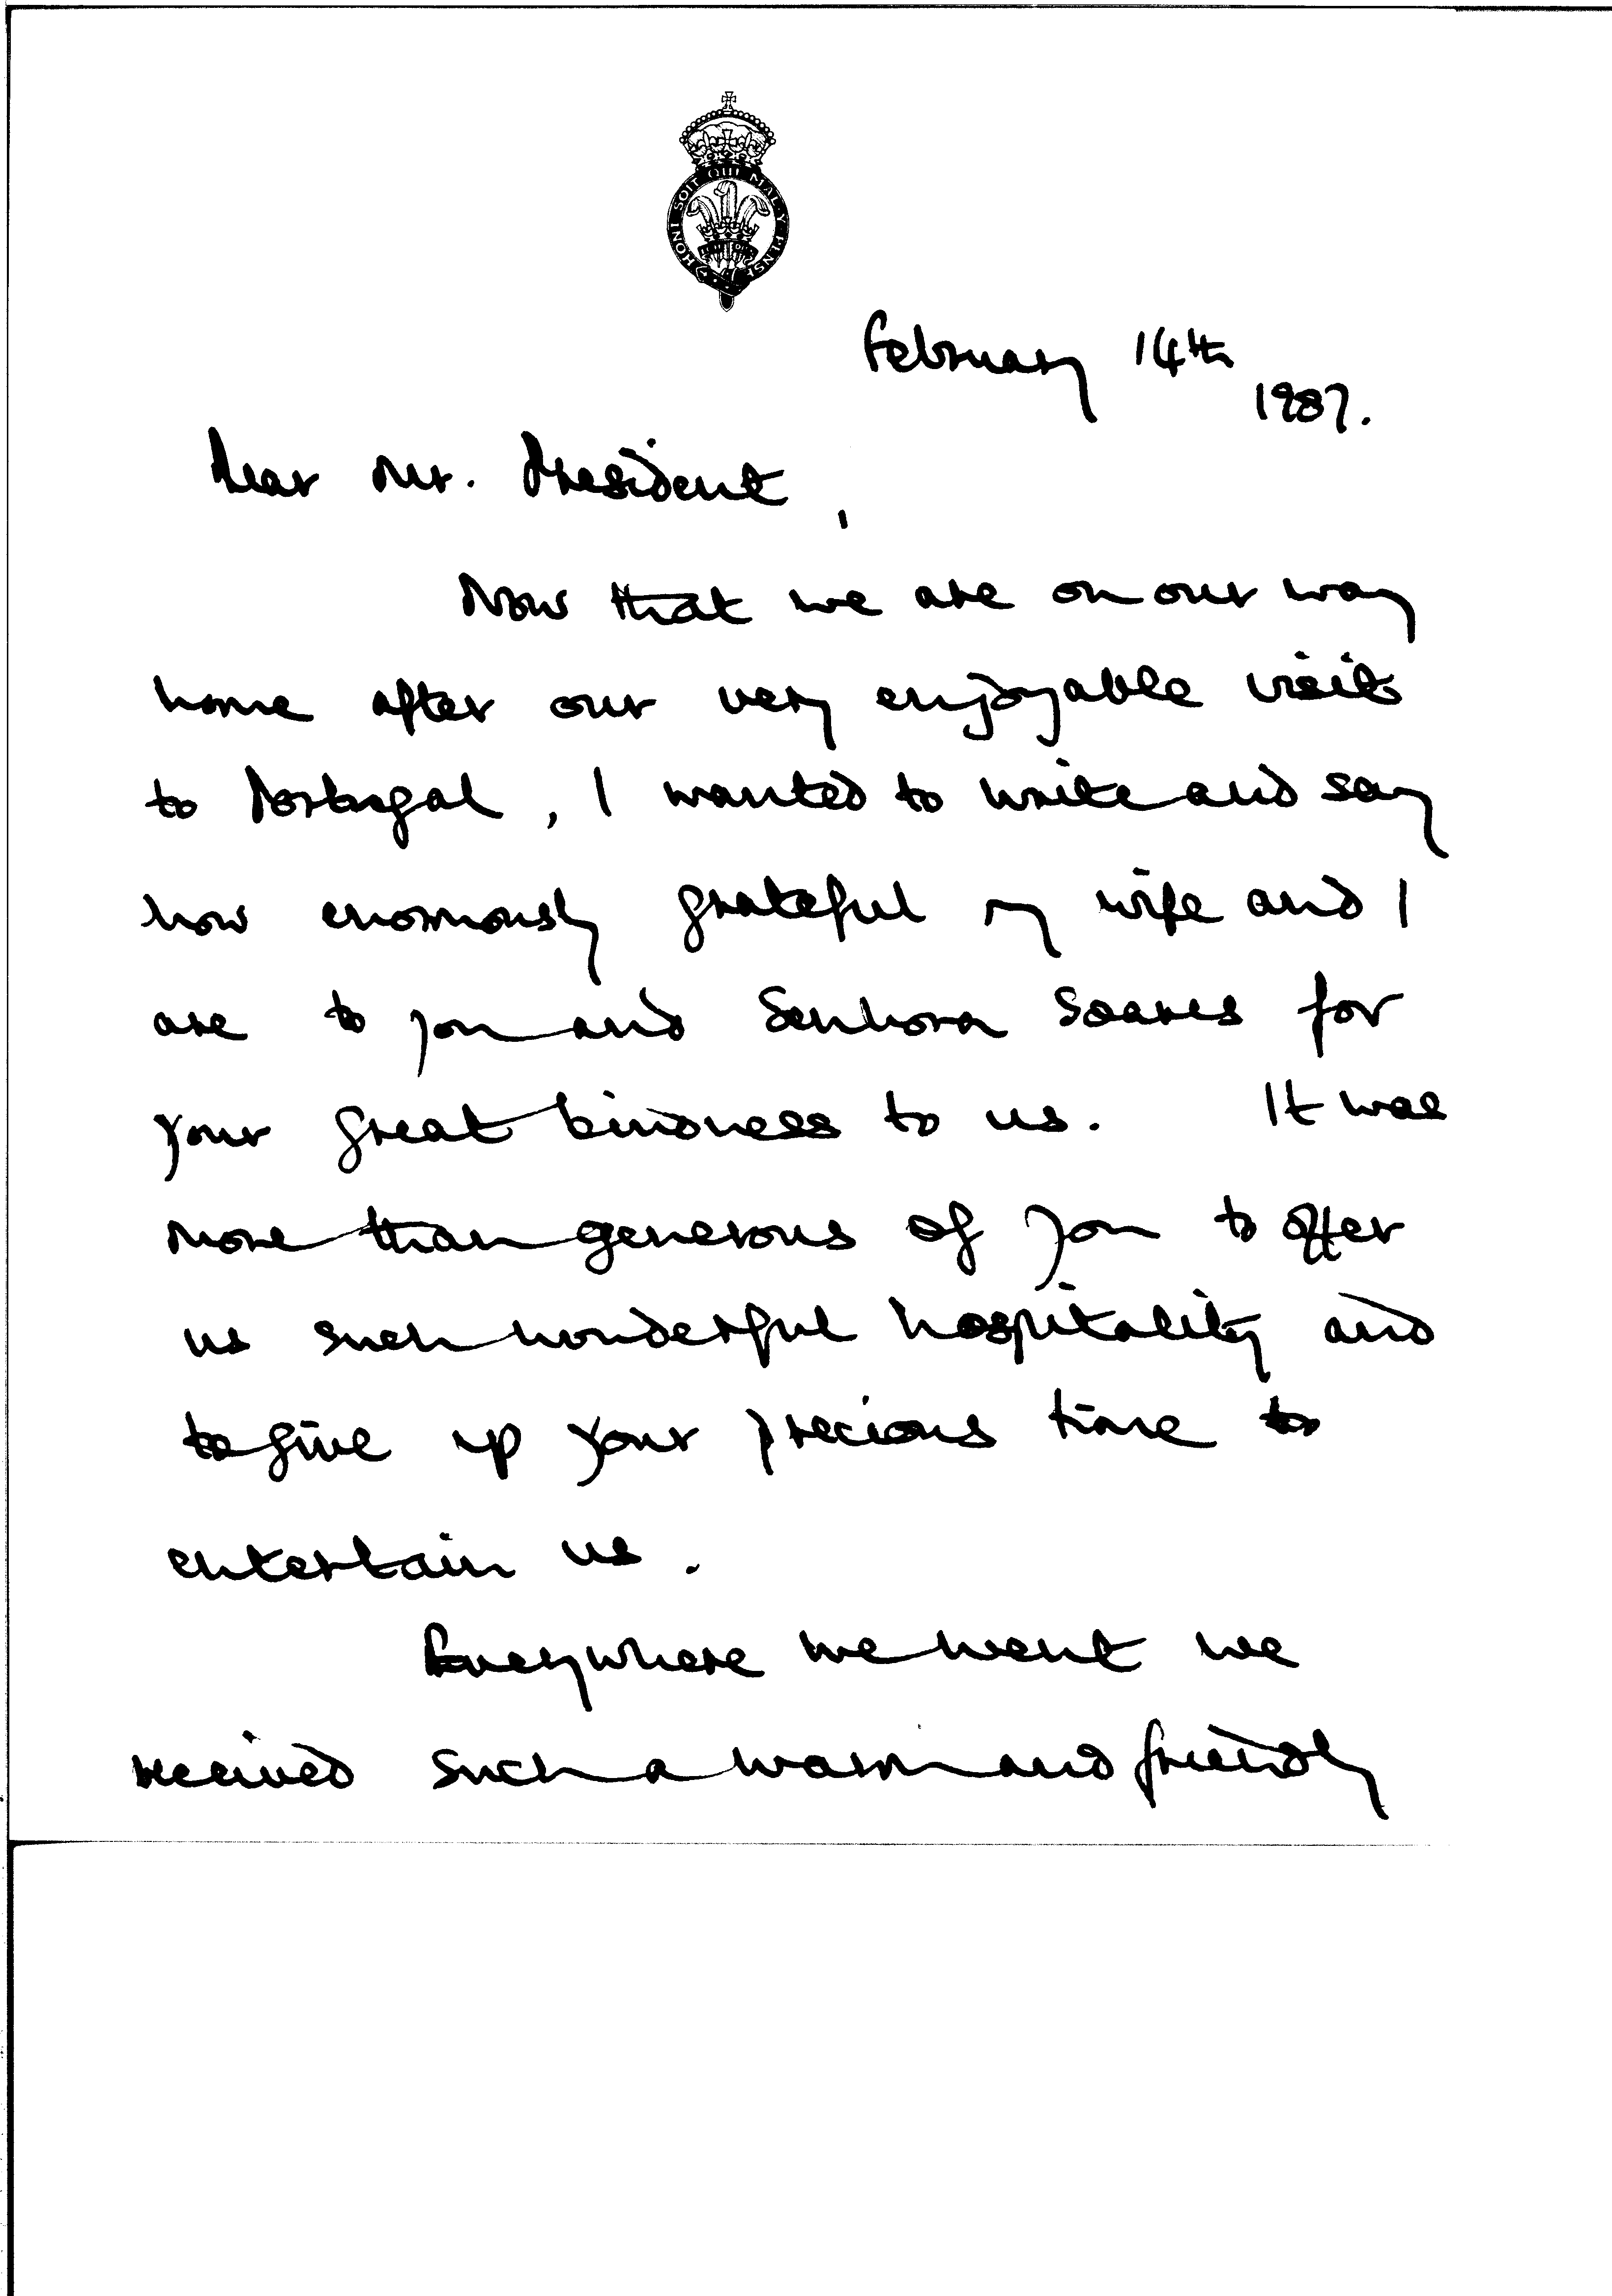 HONI SOIT QUI MAL Y PENSE
February 14th
1987.
Dear Mr. President,
Now that we are on our way
home after our very enjoyable visit
to Portugal, I wanted to write and say
how enormously grateful my wife and I
are to you and Senhora Soares for
your great kindness to us. It was
more than generous of you to offer
us such wonderful hospitality and
to give up your precious time to
entertain us.
Everywhere we went we
received such a warm and friendly